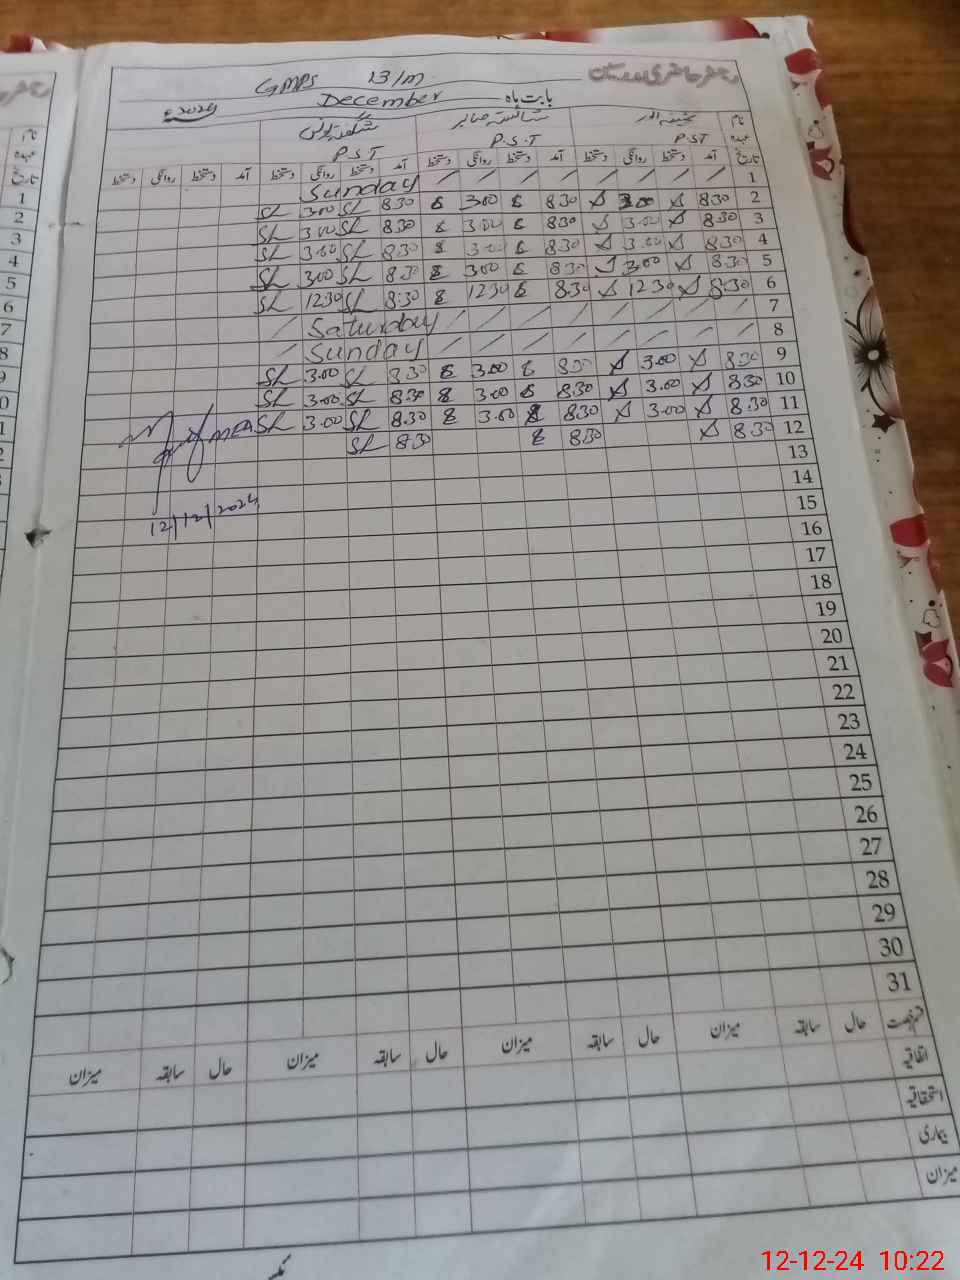 GMPS 13/m
دفتر حاضری مدرسین
بابت ماہ December 2024ء
نام
عہدہ P.S.T P.S.T P.S.T
تاریخ آمد دستخط روانگی دستخط آمد دستخط روانگی دستخط آمد دستخط روانگی دستخط آمد دستخط روانگی دستخط
1 / / / / / / / / Sunday
2 8.30 3.00 8.30 3.00 8.30 SL 3.00 SL
3 8.30 3.00 8.30 3.00 8.30 SL 3.00 SL
4 8.30 3.00 8.30 3.00 8.30 SL 3.00 SL
5 8.30 3.00 8.30 3.00 8.30 SL 3.00 SL
6 8.30 12.30 8.30 12.30 8.30 SL 12.30 SL
7 / / / / / / / / Saturday /
8 / / / / / / / / Sunday /
9 8.30 3.00 8.30 3.00 8.30 SL 3.00 SL
10 8.30 3.00 8.30 3.00 8.30 SL 3.00 SL
11 8.30 3.00 8.30 3.00 8.30 SL 3.00 SL MEA
12 8.30 8.30 8.30 SL
13
14
12/12/2024
15
16
17
18
19
20
21
22
23
24
25
26
27
28
29
30
31
حال سابقہ میزان حال سابقہ میزان حال سابقہ میزان حال سابقہ میزان
اتفاقیہ
استحقاقیہ
بیماری
میزان
12-12-24 10:22